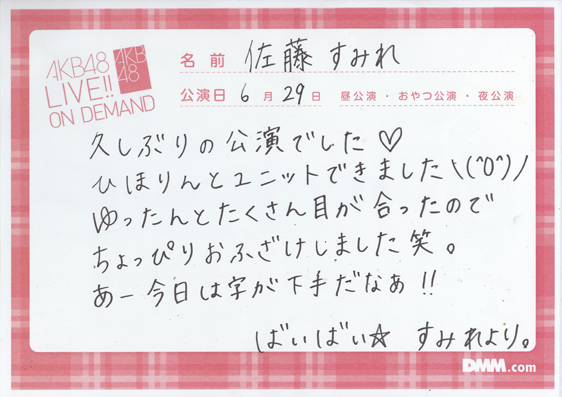 AKB48
LIVE!!
ON DEMAND
AKB
48
名前 佐藤 すみれ
公演日 6月29日 昼公演・おやつ公演・夜公演
久しぶりの公演でした♡
ひほりんとユニットできました\(^O^)/
ゆったんとたくさん目が合ったので
ちょっぴりおふざけしました笑。
あー今日は字が下手だなぁ!!
ばいばい☆ すみれより。
DMM.com